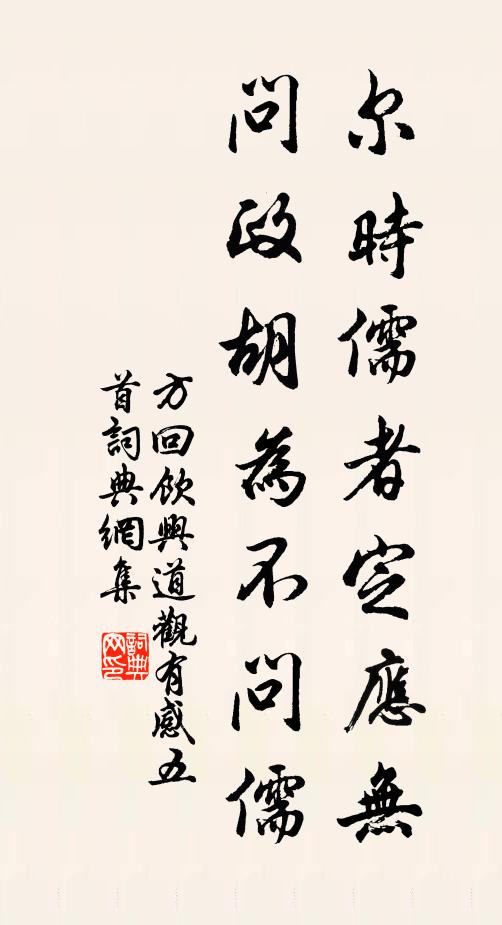 尔時儒者定應無
問政胡為不問儒
方回飲興道觀有感五
首詞典網集
詞典
网印